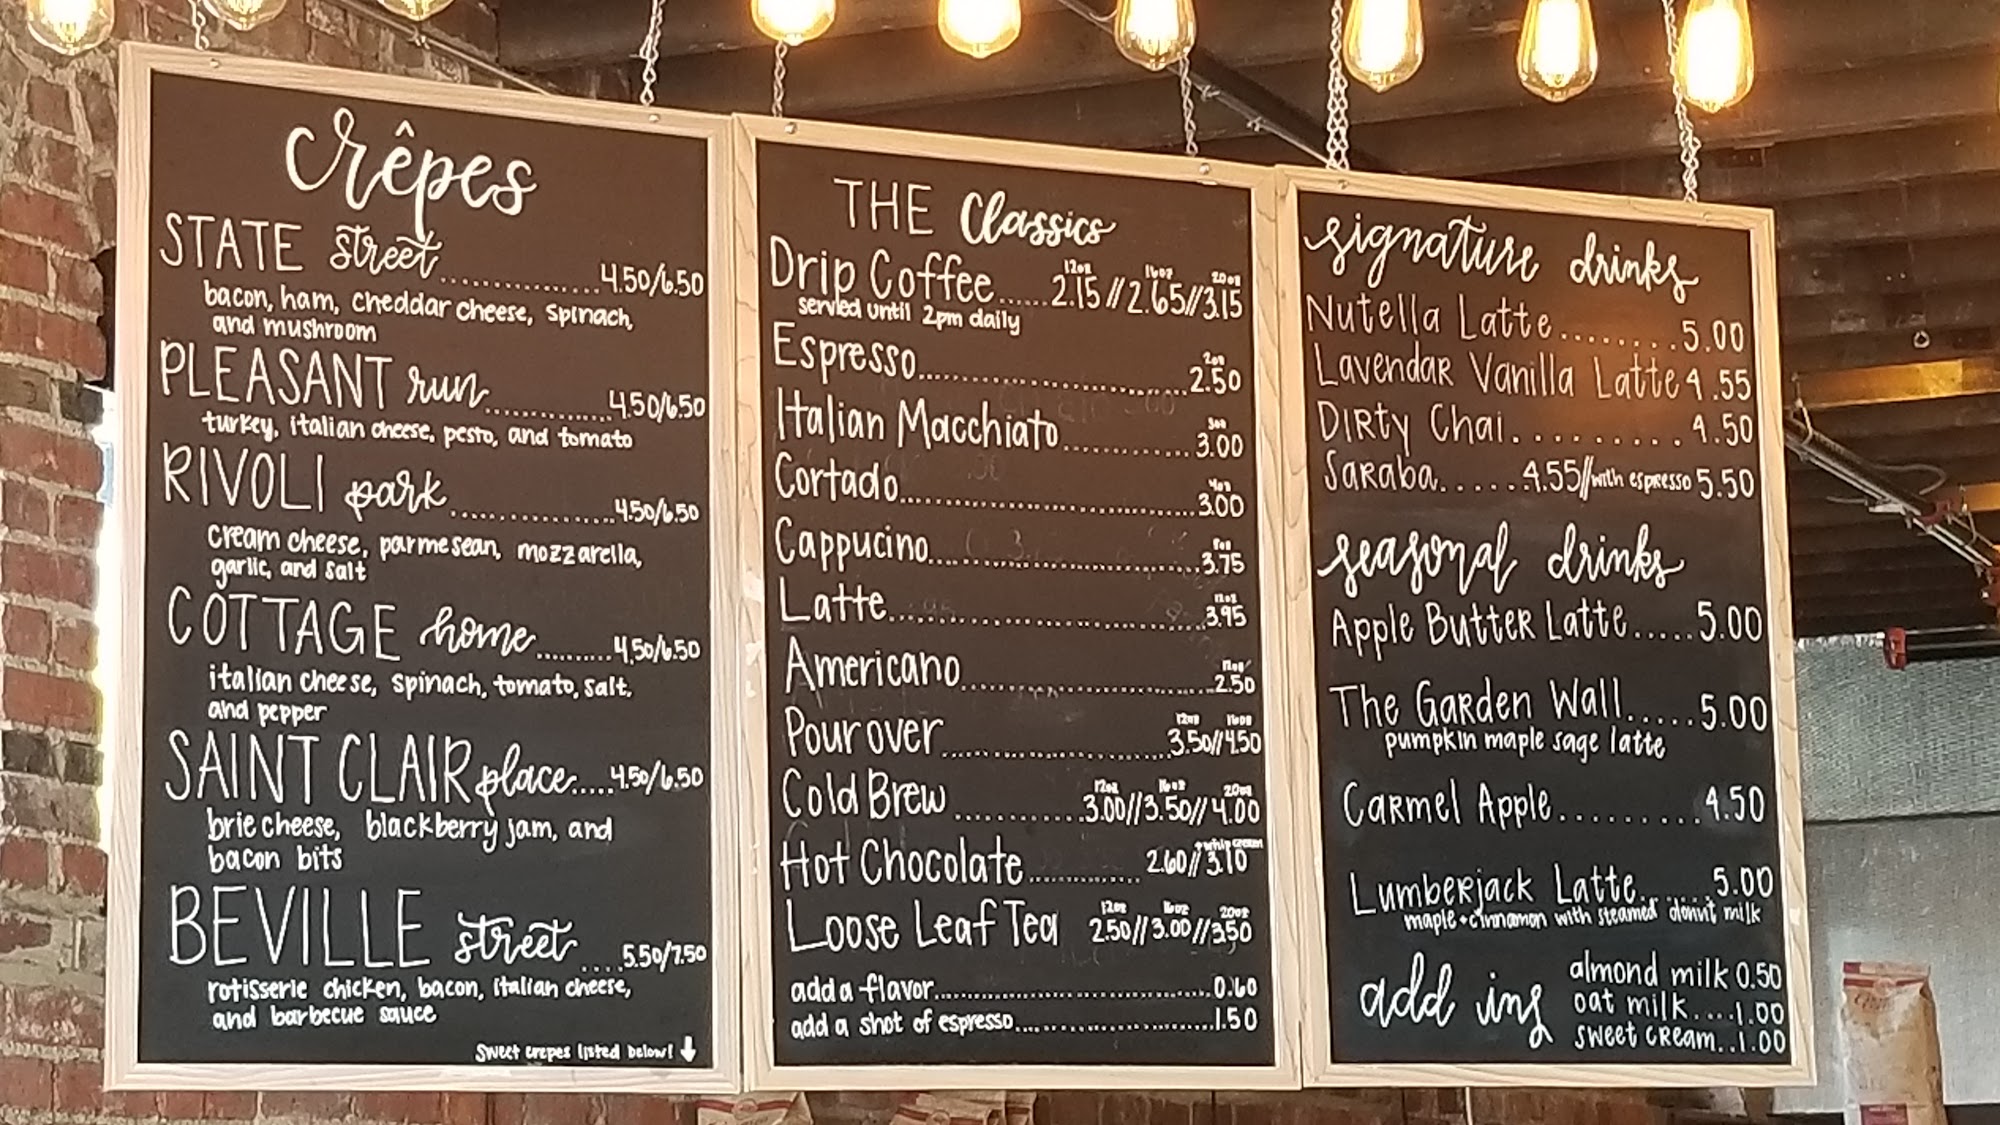 crêpes
STATE street..............4.50/6.50
bacon, ham, cheddar cheese, spinach,
and mushroom
PLEASANT run.............4.50/6.50
turkey, italian cheese, pesto, and tomato
RIVOLI park................4.50/6.50
cream cheese, parmesean, mozzarella,
garlic, and salt
COTTAGE home..........4.50/6.50
italian cheese, spinach, tomato, salt,
and pepper
SAINT CLAIR place.....4.50/6.50
brie cheese, blackberry jam, and
bacon bits
BEVILLE street ....5.50/7.50
rotisserie chicken, bacon, italian cheese,
and barbecue sauce
Sweet crepes listed below! ↓
THE Classics
12oz 16oz 20oz
Drip Coffee......2.15//2.65//3.15
served until 2pm daily
2oz
Espresso..............................2.50
3oz
Italian Macchiato.............3.00
4oz
Cortado..............................3.00
8oz
Cappucino............................3.75
12oz
Latte................................3.95
12oz
Americano..........................2.50
12oz 16oz
Pour over.......................3.50//4.50
12oz 16oz 20oz
Cold Brew .............3.00//3.50//4.00
+whip cream
Hot Chocolate............2.60//3.10
12oz 16oz 20oz
Loose Leaf Tea 2.50//3.00//3.50
add a flavor...................................0.60
add a shot of espresso.........................1.50
signature drinks
Nutella Latte........5.00
Lavendar Vanilla Latte 4.55
Dirty Chai..........4.50
Saraba.....4.55//with espresso 5.50
seasonal drinks
Apple Butter Latte.....5.00
The Garden Wall.....5.00
pumpkin maple sage latte
Carmel Apple.........4.50
Lumberjack Latte......5.00
maple+cinnamon with steamed donut milk
add ins
almond milk 0.50
oat milk....1.00
sweet cream..1.00